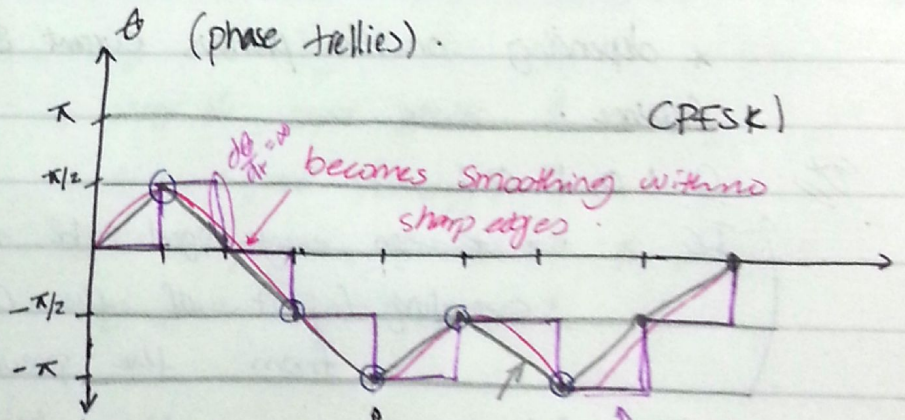 θ (phase trellies).
π
CPFSK)
π/2
dθ/dt=∞
becomes smoothing with no
sharp edges.
-π/2
-π